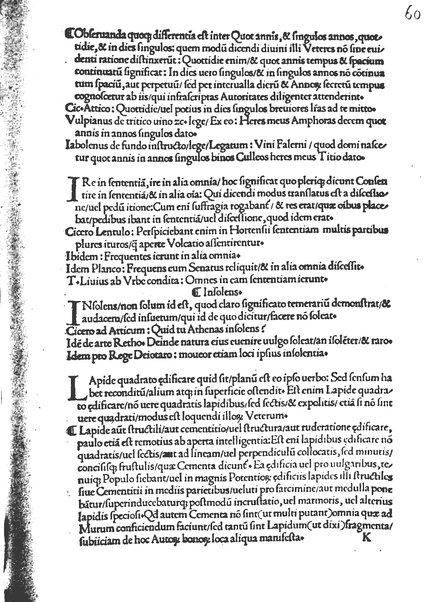 60
¶Obseruanda quoqȝ differẽtia est inter Quot annis, & singulos annos, quot-
tidie, & in dies singulos: quem modũ dicendi diuini illi Veteres nõ sine eui-
denti ratione distinxerũt: Quottidie enim/& quot annis tempus & spacium
continuatũ significat: In dies uero singulos/& in singulos annos nõ cõtinua
tum spaciũ, aut perpetuũ/sed per interualla dierũ & Annoꝝ secretũ tempus
cognoscetur ab iis/qui infrascriptas Autoritates diligenter attenderint•
Cic•Attico: Quottidie/uel potius in dies singulos breuiores lr̃as ad te mitto•
Vulpianus de tritico uino ꝛc•lege/Ex eo: Heres meus Amphoras decem quot
annis in annos singulos dato•
Iabolenus de fundo instructo/lege/Legatum: Vini Falerni/quod domi nasce-
tur quot annis in annos singulos binos Culleos heres meus Titio dato•
IRe in sententiã, ire in alia omnia/hoc significat quo pleriqȝ dicunt Consen
tire in sententiã/& in alia oĩa: Qui dicendi modus translatus est a discessio-
ne/uel pedũ itione: Cum eni suffragia rogabant/& res erat/quæ oibus place
bat/pedibus ibant in sententiã/uel discessione, quod idem erat•
Cicero Lentulo: Perspiciebant enim in Hortensii sententiam multis partibus
plures ituros/q̃ aperte Volcatio assentirentur•
Ibidem: Frequentes ierunt in alia omnia•
Idem Planco: Frequens eum Senatus reliquit/& in alia omnia discessit•
T•Liuius ab Vrbe condita: Omnes in eam sententiam ierunt•
¶Insolens•
INsolens/non solum id est, quod claro significato temerariũ demonstrat/&
audacem/sed insuetum/qui id de quo dicitur/facere nõ soleat•
Cicero ad Atticum: Quid tu Athenas insolens?
Idẽ de arte Retho• Deinde natura eius euenire uulgo soleat/an isolẽter/& raro•
Idem pro Rege Deiotaro: moueor etiam loci ipsius insolentia•
LApide quadrato ędificare quid sit/planũ est eo ipso uerbo: Sed sensum ha
bet reconditũ/alium atqȝ in superficie ostendit• Est enim Lapide quadra-
to ędificare/nõ uere quadratis lapidibus/sed sectis/& expolitis/etiã si nõ sint
uere quadrati/modus est loquendi illoꝝ Veterum•
¶Lapide aũt structili/aut cementitio/uel structura/aut ruderatione ędificare,
paulo etiã est remotius ab aperta intelligentia: Est eni lapidibus ędificare nõ
quadratis/uel sectis/aut ad lineam/uel perpendiculũ collocatis, sed minutis/
concisisqȝ frustulis/quæ Cementa dicunt• Ea ędificia uel pro uulgaribus, te-
nuiqȝ Populo fiebant/uel in magnis Potentioꝝ ędificiis lapides illi structiles
siue Cementitii in mediis parietibus/ueluti pro farcimine/aut medulla pone
bãtur/superinducebaturqȝ postmodũ incrustatio, uel marmoris, uel alterius
lapidis speciosi• Qd autem Cementa nõ sint(ut multi putant)omnia quæ ad
Murum conficiendum faciunt/sed tantũ sint Lapidum(ut dixi)fragmenta/
subiiciam de hoc Autoꝝ bonoꝝ loca aliqua manifesta•
K